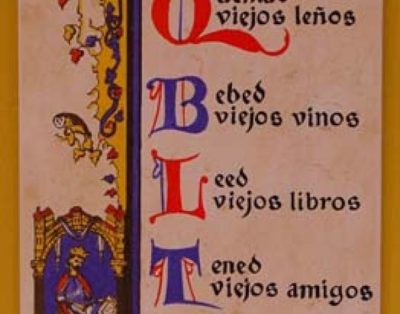 Quemad
viejos leños
Bebed
viejos vinos
Leed
viejos libros
Tened
viejos amigos